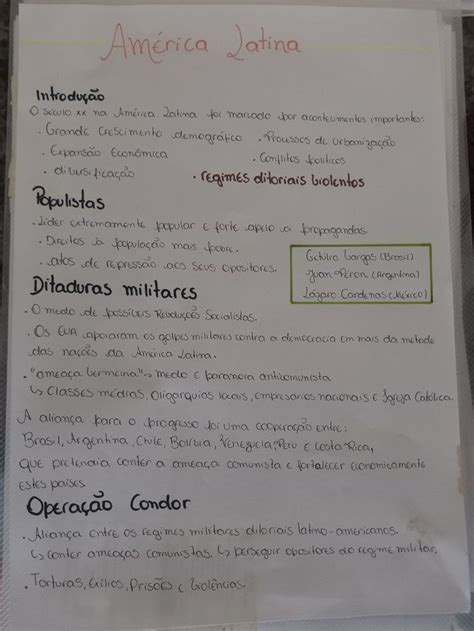 América Latina
Introdução
O século XX na América Latina foi marcado por acontecimentos importantes:
• Grande crescimento demográfico • Processos de urbanização
• Expansão Econômica • Conflitos políticos
• diversificação • regimes ditoriais violentos
Populistas
• Líder extremamente popular e forte apelo a propagandas.
• Direitos à população mais pobre.
• atos de repressão aos seus opositores.
Getúlio Vargas (Brasil)
Juan Peron (Argentina)
Lázaro Cardenas (México)
Ditaduras militares
• O medo de possíveis Revoluções Socialistas.
• Os EUA apoiaram os golpes militares contra a democracia em mais da metade
das nações da América Latina.
• "ameaça vermelha" -> medo e paranoia anticomunista
↳ Classes médias, Oligarquias locais, empresários nacionais e Igreja Católica.
A aliança para o progresso foi uma cooperação entre:
Brasil, Argentina, Chile, Bolívia, Venezuela, Peru e Costa Rica,
que pretendia conter a ameaça comunista e fortalecer economicamente
estes países
Operação Condor
• Aliança entre os regimes militares ditoriais latino-americanos.
↳ conter ameaças comunistas. ↳ perseguir opositores do regime militar.
• Torturas, Exílios, Prisões e Violências.